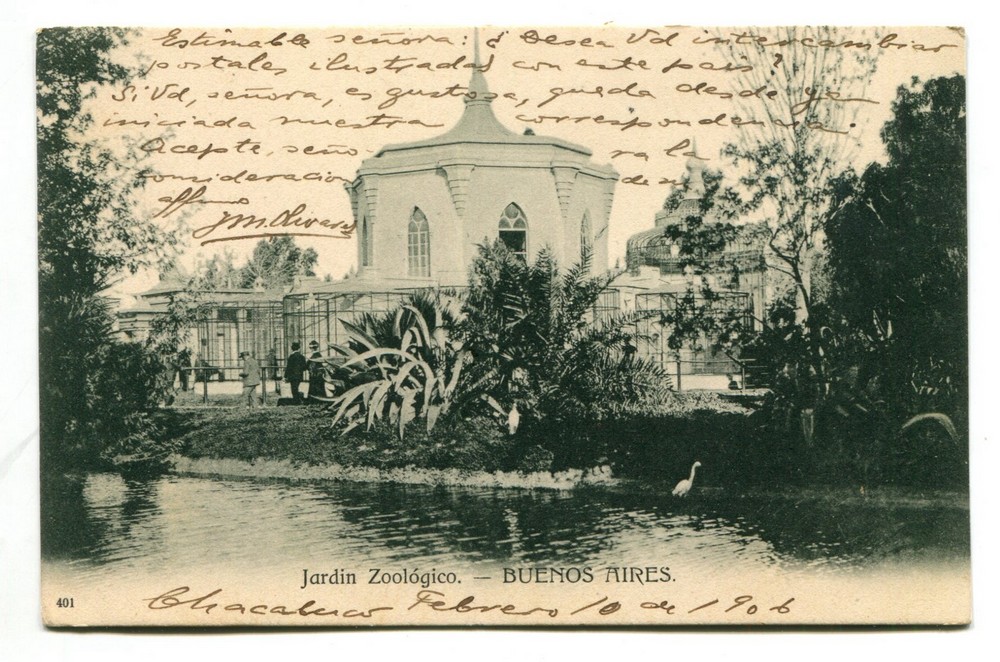 Estimable señora: ¿ Desea Vd intercambiar
postales ilustradas con este pais?
Si Vd, señora, es gustosa, queda desde ya
iniciada nuestra correspondencia.
Acepte, seño- ra la
consideracion de su
affmo
J M. Olivares
Jardin Zoológico. — BUENOS AIRES.
401
Chacabuco Febrero 10 de 1906